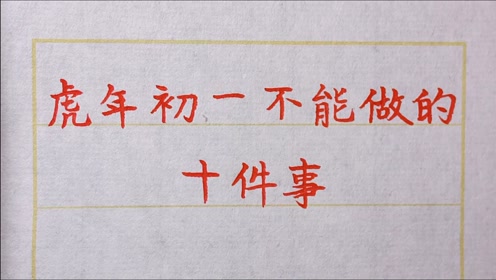 虎年初一不能做的
十件事